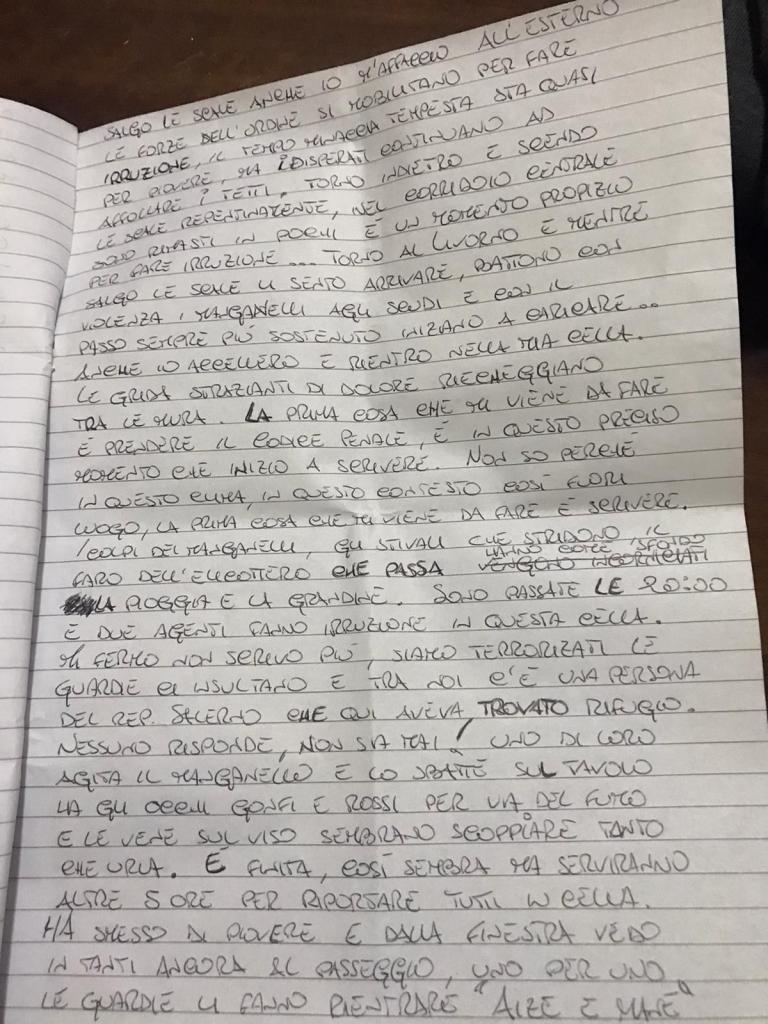 SALGO LE SCALE ANCHE IO M'AFFACCIO ALL'ESTERNO
LE FORZE DELL'ORDINE SI MOBILITANO PER FARE
IRRUZIONE, IL TEMPO MINACCIA TEMPESTA STA QUASI
PER PIOVERE, MA I DISPERATI CONTINUANO AD
AFFOLLARE I TETTI. TORNO INDIETRO E SCENDO
LE SCALE REPENTINAMENTE, NEL CORRIDOIO CENTRALE
SONO RIMASTI IN POCHI È UN MOMENTO PROPIZIO
PER FARE IRRUZIONE... TORNO AL LIVORNO E MENTRE
SALGO LE SCALE LI SENTO ARRIVARE, BATTONO CON
VIOLENZA I MANGANELLI AGLI SCUDI E CON IL
PASSO SEMPRE PIÙ SOSTENUTO INIZIANO A CARICARE...
ANCHE IO ACCELLERO E RIENTRO NELLA MIA CELLA.
LE GRIDA STRAZIANTI DI DOLORE RIECHEGGIANO
TRA LE MURA. LA PRIMA COSA CHE MI VIENE DA FARE
È PRENDERE IL CODICE PENALE, È IN QUESTO PRECISO
MOMENTO CHE INIZIO A SCRIVERE. NON SO PERCHÉ
IN QUESTO CLIMA, IN QUESTO CONTESTO COSÌ FUORI
LUOGO, LA PRIMA COSA CHE MI VIENE DA FARE È SCRIVERE.
I COLPI DEI MANGANELLI, GLI STIVALI CHE STRIDONO IL
FARO DELL'ELICOTTERO CHE PASSA HANNO COME SFONDO
LA PIOGGIA E LA GRANDINE. SONO PASSATE LE 20:00
E DUE AGENTI FANNO IRRUZIONE IN QUESTA CELLA.
MI FERMO NON SCRIVO PIÙ, SIAMO TERRORIZATI LE
GUARDIE CI INSULTANO E TRA NOI C'È UNA PERSONA
DEL REP. SALERNO CHE QUI AVEVA TROVATO RIFUGIO.
NESSUNO RISPONDE, NON SIA MAI! UNO DI LORO
AGITA IL MANGANELLO E LO SBATTE SUL TAVOLO
HA GLI OCCHI GONFI E ROSSI PER VIA DEL FUMO
E LE VENE SUL VISO SEMBRANO SCOPPIARE TANTO
CHE URLA. È FINITA, COSÌ SEMBRA MA SERVIRANNO
ALTRE 5 ORE PER RIPORTARE TUTTI IN CELLA.
HA SMESSO DI PIOVERE E DALLA FINESTRA VEDO
IN TANTI ANCORA AL PASSEGGIO, UNO PER UNO
LE GUARDIE LI FANNO RIENTRARE "ALZE E MANE"